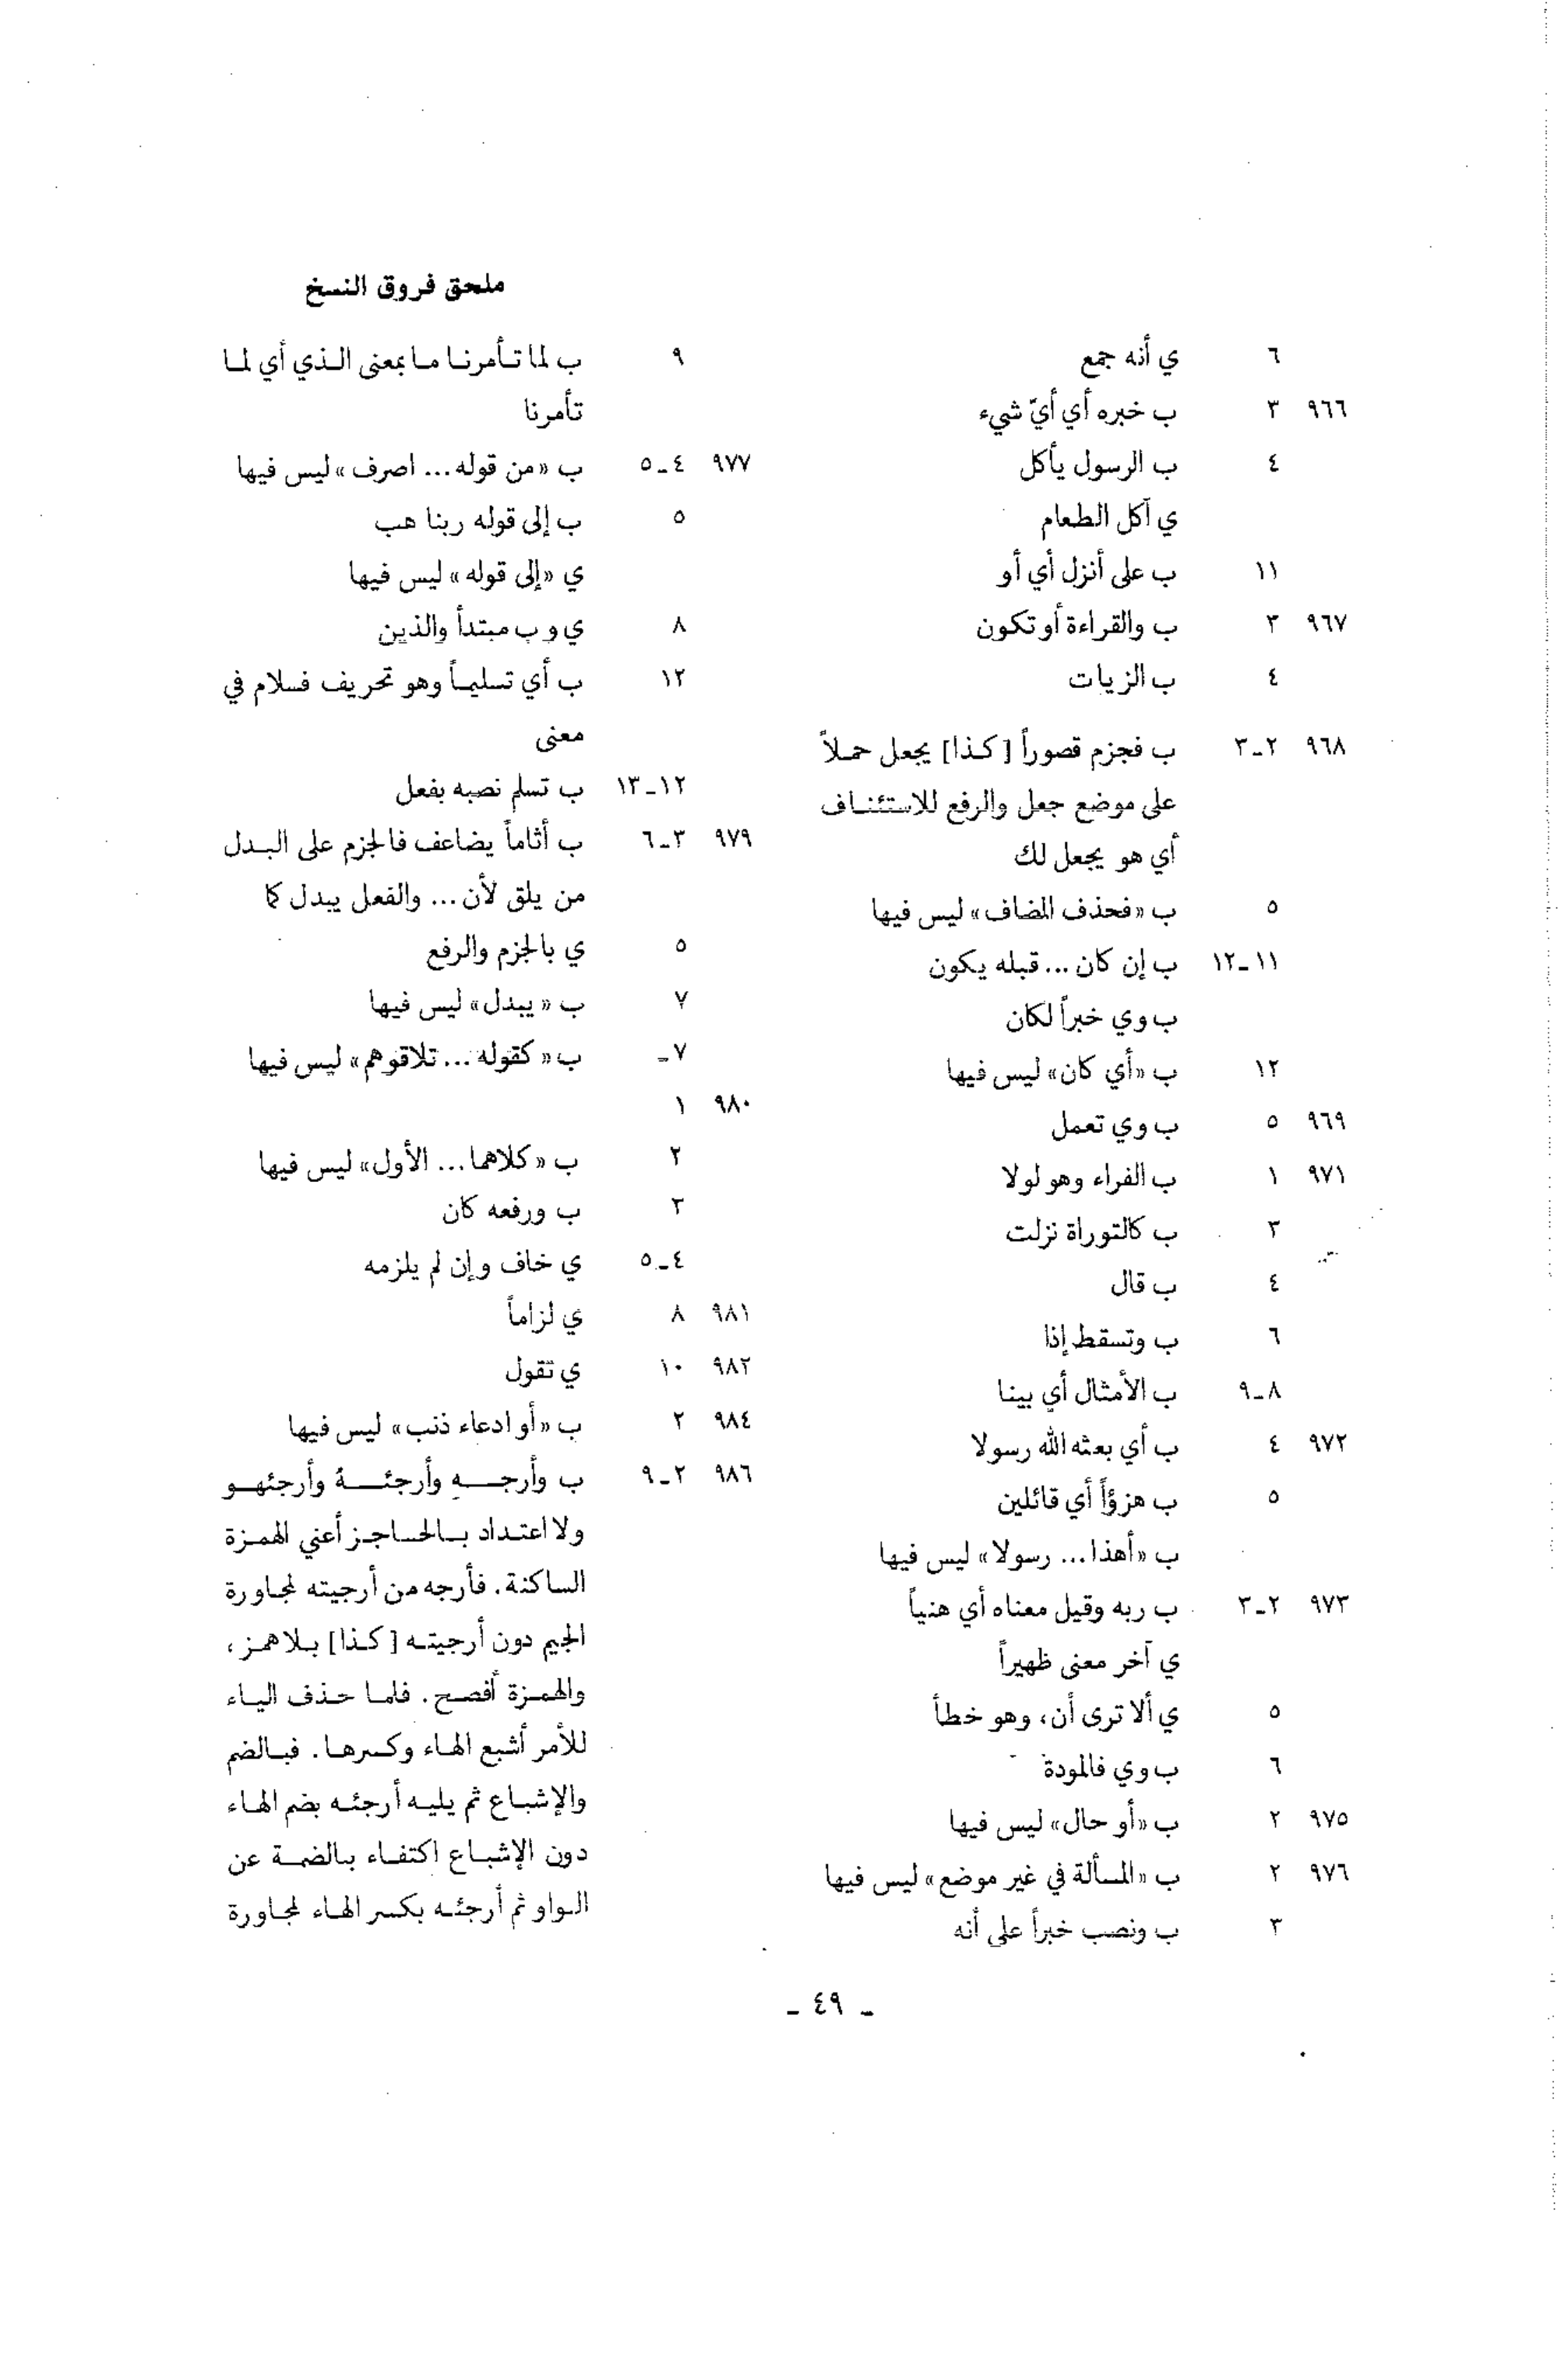 ملحق فروق النسخ
٦ ي أنه جمع
٩٦٦ ٣ ب خبره أي أيّ شيء
٤ ب الرسول يأكل
ي آكل الطعام
١١ ب على أنزل أي أو
٩٦٧ ٣ ب والقراءة أو تكون
٤ ب الزيات
٩٦٨ ٢ـ٣ ب فجزم قصوراً [كذا] يجعل حملاً
على موضع جعل والرفع للاستئناف
أي هو يجعل لك
٥ ب «فحذف المضاف» ليس فيها
١١ـ١٢ ب إن كان ... قبله يكون
ب وي خبراً لكان
١٢ ب «أي كان» ليس فيها
٩٦٩ ٥ ب وي تعمل
٩٧١ ١ ب الفراء وهو لولا
٣ ب كالتوراة نزلت
٤ ب قال
٦ ب وتسقط إذا
٨ـ٩ ب الأمثال أي بينا
٩٧٢ ٤ ب أي بعثه الله رسولا
٥ ب هزؤاً أي قائلين
ب «أهذا ... رسولا» ليس فيها
٩٧٣ ٢ـ٣ ب ربه وقيل معناه أي هنياً
ي آخر معنى ظهيراً
٥ ي ألا ترى أن، وهو خطأ
٦ ب وي فالمودة
٩٧٥ ٢ ب «أو حال» ليس فيها
٩٧٦ ٢ ب «المسألة في غير موضع» ليس فيها
٣ ب ونصب خبراً على أنه
٩ ب لما تأمرنا ما بمعنى الذي أي لما
تأمرنا
٩٧٧ ٤ـ٥ ب «من قوله ... اصرف» ليس فيها
٥ ب إلى قوله ربنا هب
ي «إلى قوله» ليس فيها
٨ ي و ب مبتدأ والذين
١٢ ب أي تسليماً وهو تحريف فسلام في
معنى
١٢ـ١٣ ب تسلم نصبه بفعل
٩٧٩ ٣ـ٦ ب أثاماً يضاعف فالجزم على البدل
من يلق لأن ... والفعل يبدل كما
٥ ي بالجزم والرفع
٧ ب «يبدل» ليس فيها
٧ـ ب «كقوله ... تلاقوهم» ليس فيها
٩٨٠ ١
٢ ب «كلاهما ... الأول» ليس فيها
٣ ب ورفعه كان
٤ـ٥ ي خاف وإن لم يلزمه
٩٨١ ٨ ي لزاماً
٩٨٢ ١٠ ي تقول
٩٨٤ ٢ ب «أو ادعاء ذنب» ليس فيها
٩٨٦ ٢ـ٩ ب وأرجهِ وأرجئهُ وأرجئهو
ولا اعتداد بالحاجز أعني الهمزة
الساكنة. فأرجه من أرجيته لمجاورة
الجيم دون أرجيته [كذا] بلا همز،
والهمزة أفصح. فلما حذف الياء
للأمر أشبع الهاء وكسرها. فبالضم
والإشباع ثم يليه أرجئه بضم الهاء
دون الإشباع اكتفاء بالضمة عن
الواو ثم أرجئه بكسر الهاء لمجاورة
ـ ٤٩ ـ